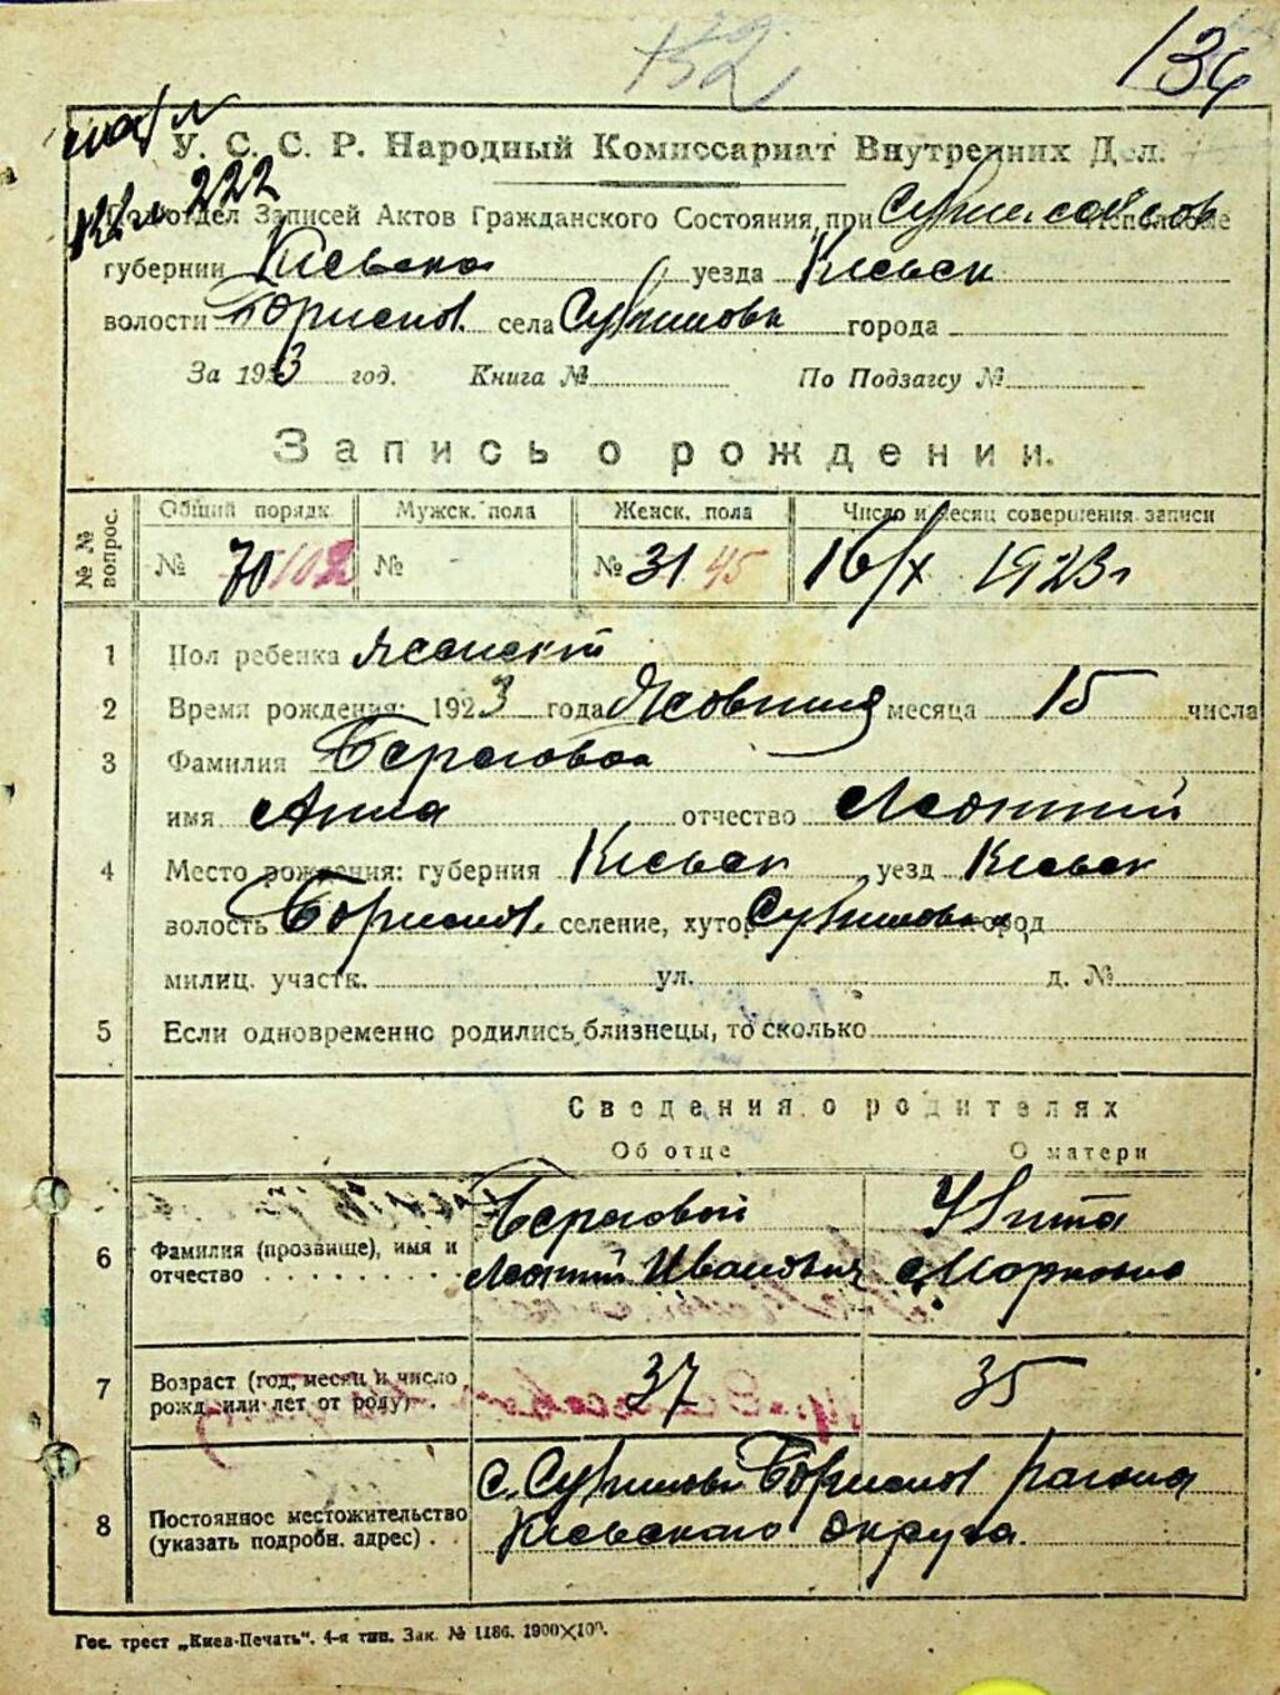 132
134
№ 222
У. С. С. Р. Народный Комиссариат Внутренних Дел.
Подотдел Записей Актов Гражданского Состояния, при Исполкоме
губернии Кіевска уезда Кіевськ
волости Бориспол. села города
За 1923 год. Книга № По Подзагсу №
Запись о рождении.
№ № вопрос. Общий порядк. Мужск. пола Женск. пола Число и месяц совершения записи
№ 70 102 № № 31 45 16/X 1923 г
1 Пол ребенка женский
2 Время рождения: 1923 года Жовтня месяца 15 числа
3 Фамилия
имя Анна отчество Леонтий
4 Место рождения: губерния Кіевск уезд Кіевск
волость Бориспол. селение, хутор город
милиц. участк. ул. д. №
5 Если одновременно родились близнецы, то сколько
Сведения о родителях
Об отце О матери
6 Фамилия (прозвище), имя и отчество Леонтий Иванович Марковна
7 Возраст (год, месяц и число рожд. или лет от роду) 37 35
8 Постоянное местожительство (указать подробн. адрес) с. Бориспол района
Кіевского округа.
Гос. трест „Киев-Печать“. 4-я тип. Зак. № 1186. 1900×100.